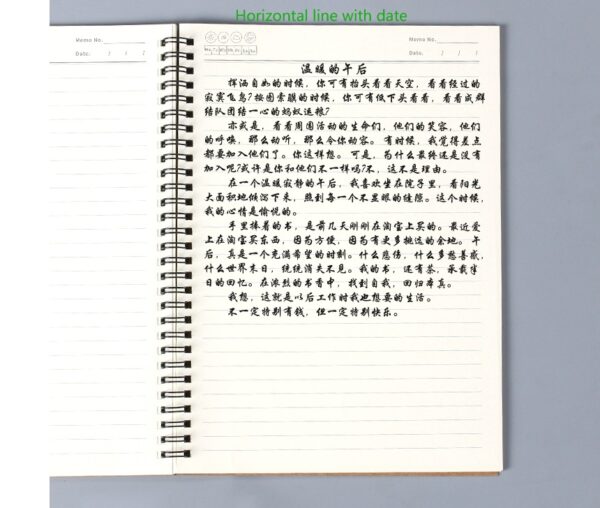 Horizontal line with date
Memo No.
Date. / /
Memo No.
Date. / /
温暖的午后
挥洒自如的时候，你可有抬头看看天空，看看经过的
寂寞飞鸟？按图索骥的时候，你可有低下头看看，看看成群
结队团结一心的蚂蚁运粮？
亦或是，看看周围活动的生命们，他们的笑容，他们
的呼唤，那么动听，那么令你动容。有时候，我觉得差点
都要加入他们了。你这样想。可是，为什么最终还是没有
加入呢？或许是你和他们不一样吗？不，这不是理由。
在一个温暖寂静的午后，我喜欢坐在院子里，看阳光
大面积地倾泻下来，照到每一个不显眼的缝隙。这个时候，
我的心情是愉悦的。
手里捧着的书，是前几天刚刚在淘宝上买的。最近爱
上在淘宝买东西，因为方便，因为有更多挑选的余地。午
后，真是一个充满希望的时刻。什么悲伤，什么多愁善感，
什么世界末日，统统消失不见。我的书，还有茶，承载旧
日的回忆。在浓烈的书香中，找到自我，回归本真。
我想，这就是以后工作时我也想要的生活。
不一定特别有钱，但一定特别快乐。